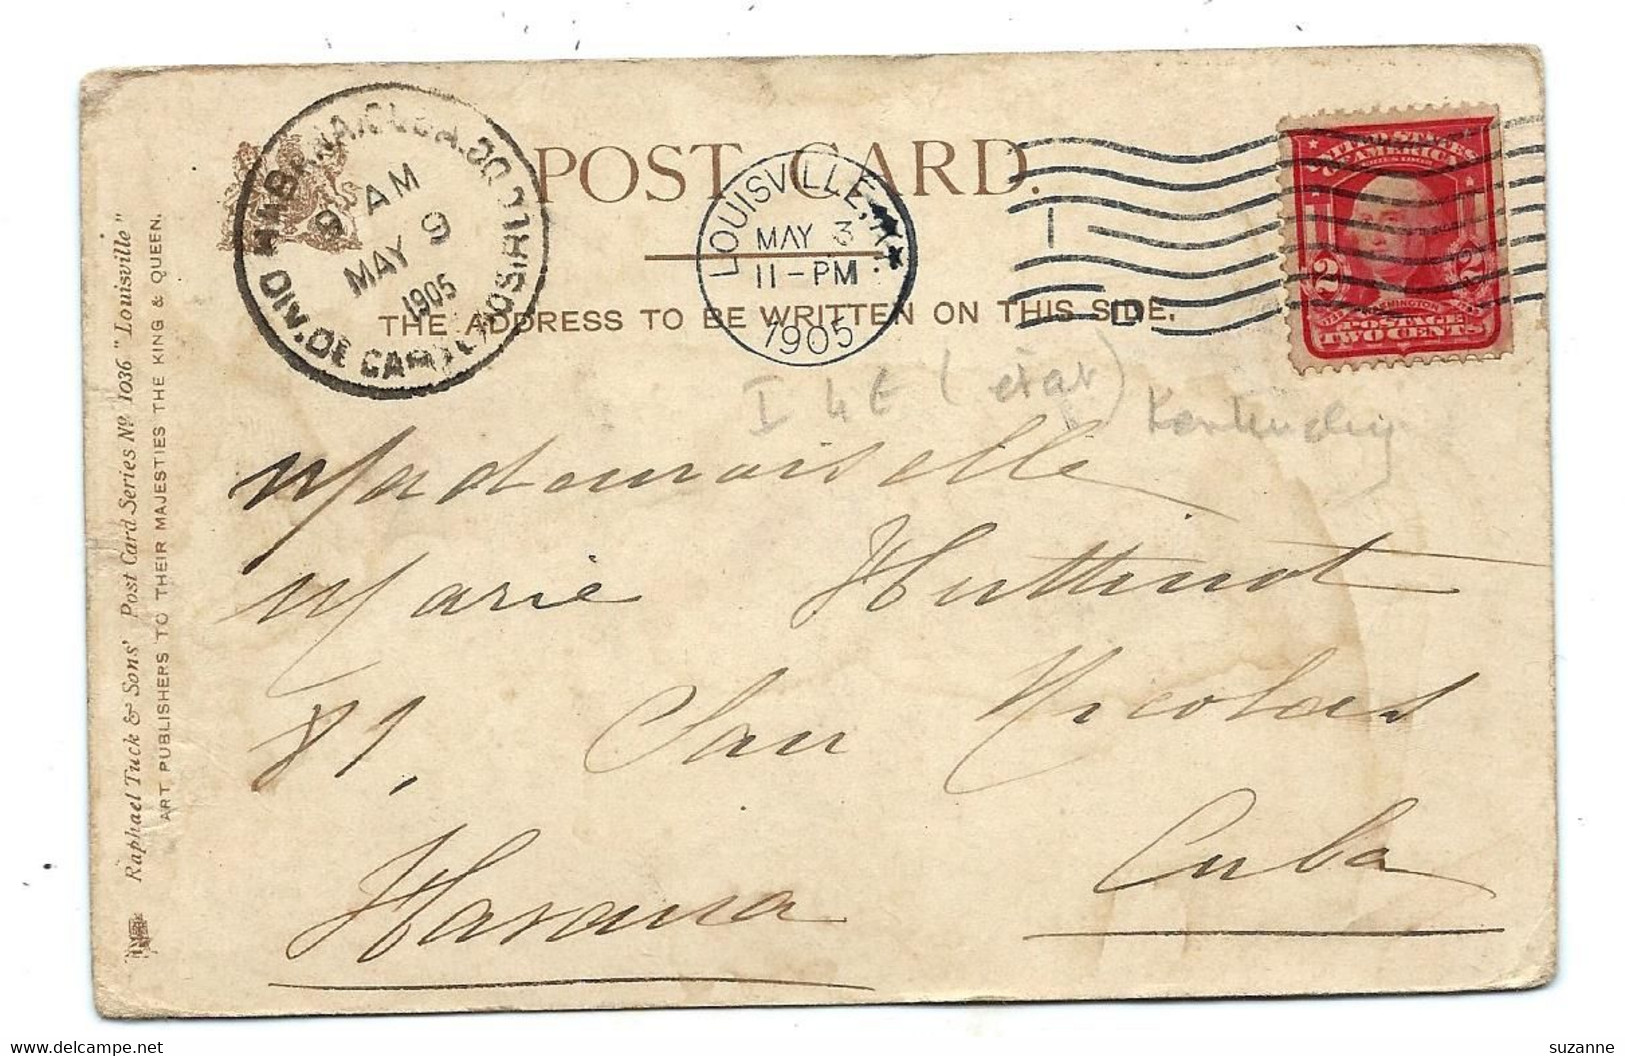 POST CARD.
THE ADDRESS TO BE WRITTEN ON THIS SIDE.
HABANA. CUBA.
9 AM
MAY 9
1905
DIV. DE
LOUISVILLE, KY
MAY 3
11-PM
1905
UNITED STATES
OF AMERICA
2 2
WASHINGTON
POSTAGE
TWO CENTS
(état) Kentucky
Mademoiselle
Marie Huttinot
81, San Nicolas
Havana Cuba
Raphael Tuck & Sons' Post Card Series No 1036 "Louisville"
ART PUBLISHERS TO THEIR MAJESTIES THE KING & QUEEN.
delcampe.net
suzanne